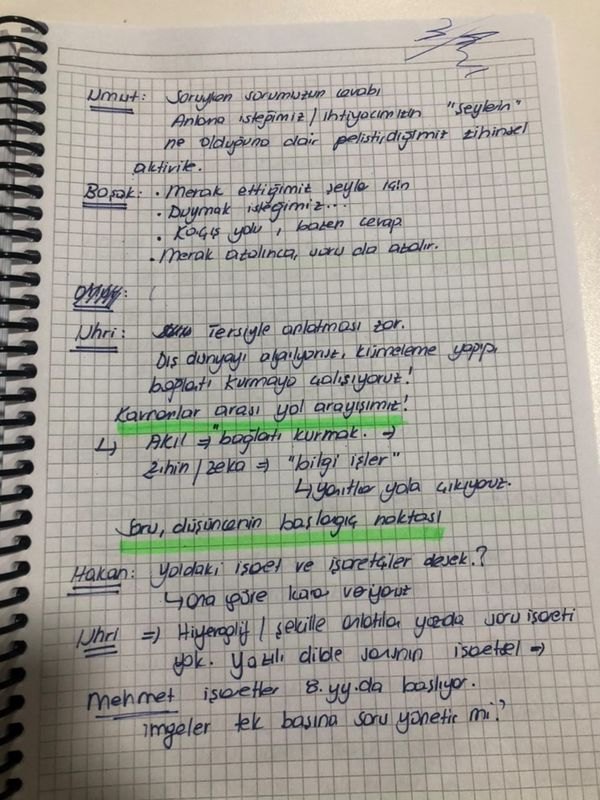 Umut: Soruyken sorumuzun cevabı
Anlama isteğimiz / ihtiyacımızın "şeylerin"
ne olduğuna dair geliştirdiğimiz zihinsel
aktivite.
Başak: • Merak ettiğimiz şeyler için
• Duymak isteğimiz...
• Kaçış yolu, bazen cevap
• Merak azalınca, soru da azalır.
Nhri: Tersiyle anlatması zor.
Dış dünyayı algılıyoruz, kümeleme yapıp,
bağlatı kurmaya çalışıyoruz!
Kavramlar arası yol arayışımız!
↳ Akıl ⇒ "bağlatı kurmak. ⇒
zihin / zeka ⇒ "bilgi işler"
↳ yanıtlar yola çıkıyoruz.
Soru, düşüncenin başlangıç noktası
Hakan: Yoldaki işaret ve işaretçiler desek.?
↳ ona göre karar veriyoruz
Nhri ⇒ Hiyeroglif / şekille anlatılan yazıda soru işareti
yok. Yazılı dilde sorunun işaretsel ⇒
Mehmet işaretler 8.yy.da başlıyor.
imgeler tek başına soru yönetir mi?